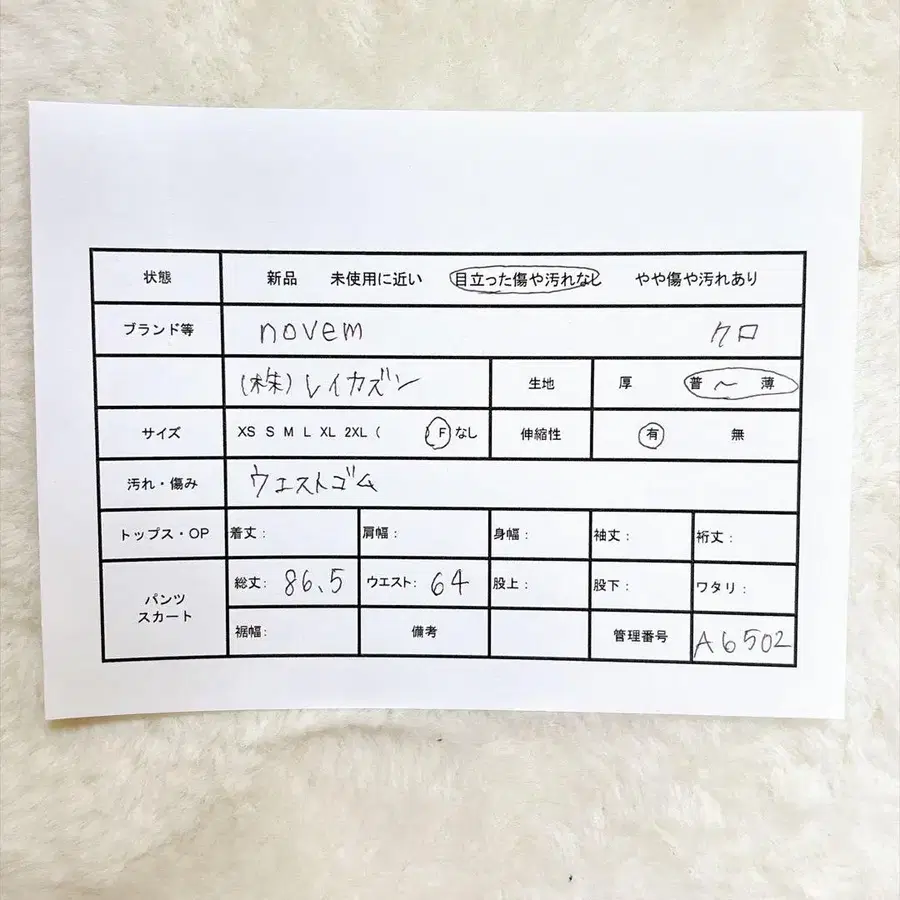 状態 新品 未使用に近い 目立った傷や汚れなし やや傷や汚れあり
ブランド等 novem クロ
(株)レイカズン 生地 厚 普 〜 薄
サイズ XS S M L XL 2XL ( ) F なし 伸縮性 有 無
汚れ・傷み ウエストゴム
トップス・OP 着丈: 肩幅: 身幅: 袖丈: 裄丈:
パンツ スカート 総丈: 86.5 ウエスト: 64 股上: 股下: ワタリ:
裾幅: 備考 管理番号 A6502